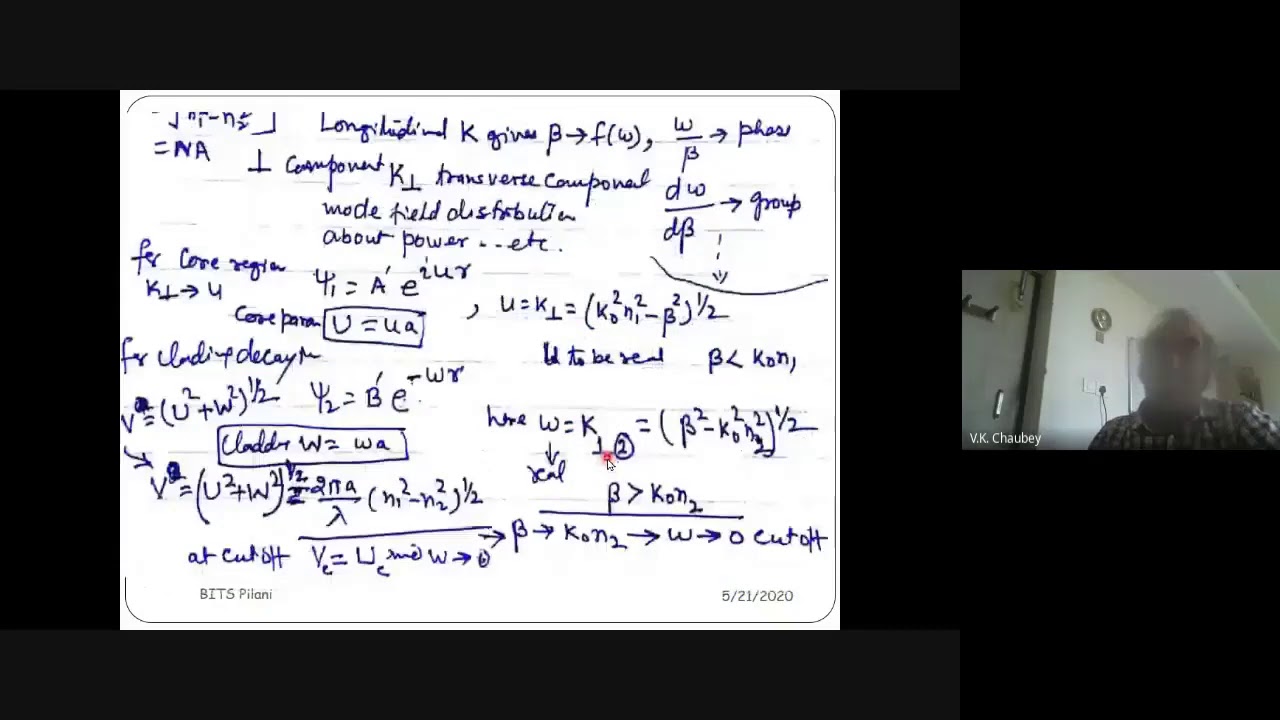 = NA
Longitudinal K gives β → f(ω), ω/β → phase
⊥ Component K⊥ transverse component
mode field distribution
about power ... etc.
dω/dβ → group
for Core region
K⊥ → u
ψ₁ = A' e^{iur}, u = K⊥ = (k₀²n₁² − β²)^{1/2}
Core param U = ua
u to be real β < k₀n₁
for cladding decay
V = (U² + W²)^{1/2} ψ₂ = B' e^{−wr}
here w = K⊥② = (β² − k₀²n₂²)^{1/2}
↓
real
W = wa
V = (U² + W²)^{1/2} = 2πa/λ (n₁² − n₂²)^{1/2}
β > k₀n₂
→ β → k₀n₂ → w → 0 cutoff
at cutoff V_c = U_c and w → 0
BITS Pilani
5/21/2020
V.K. Chaubey